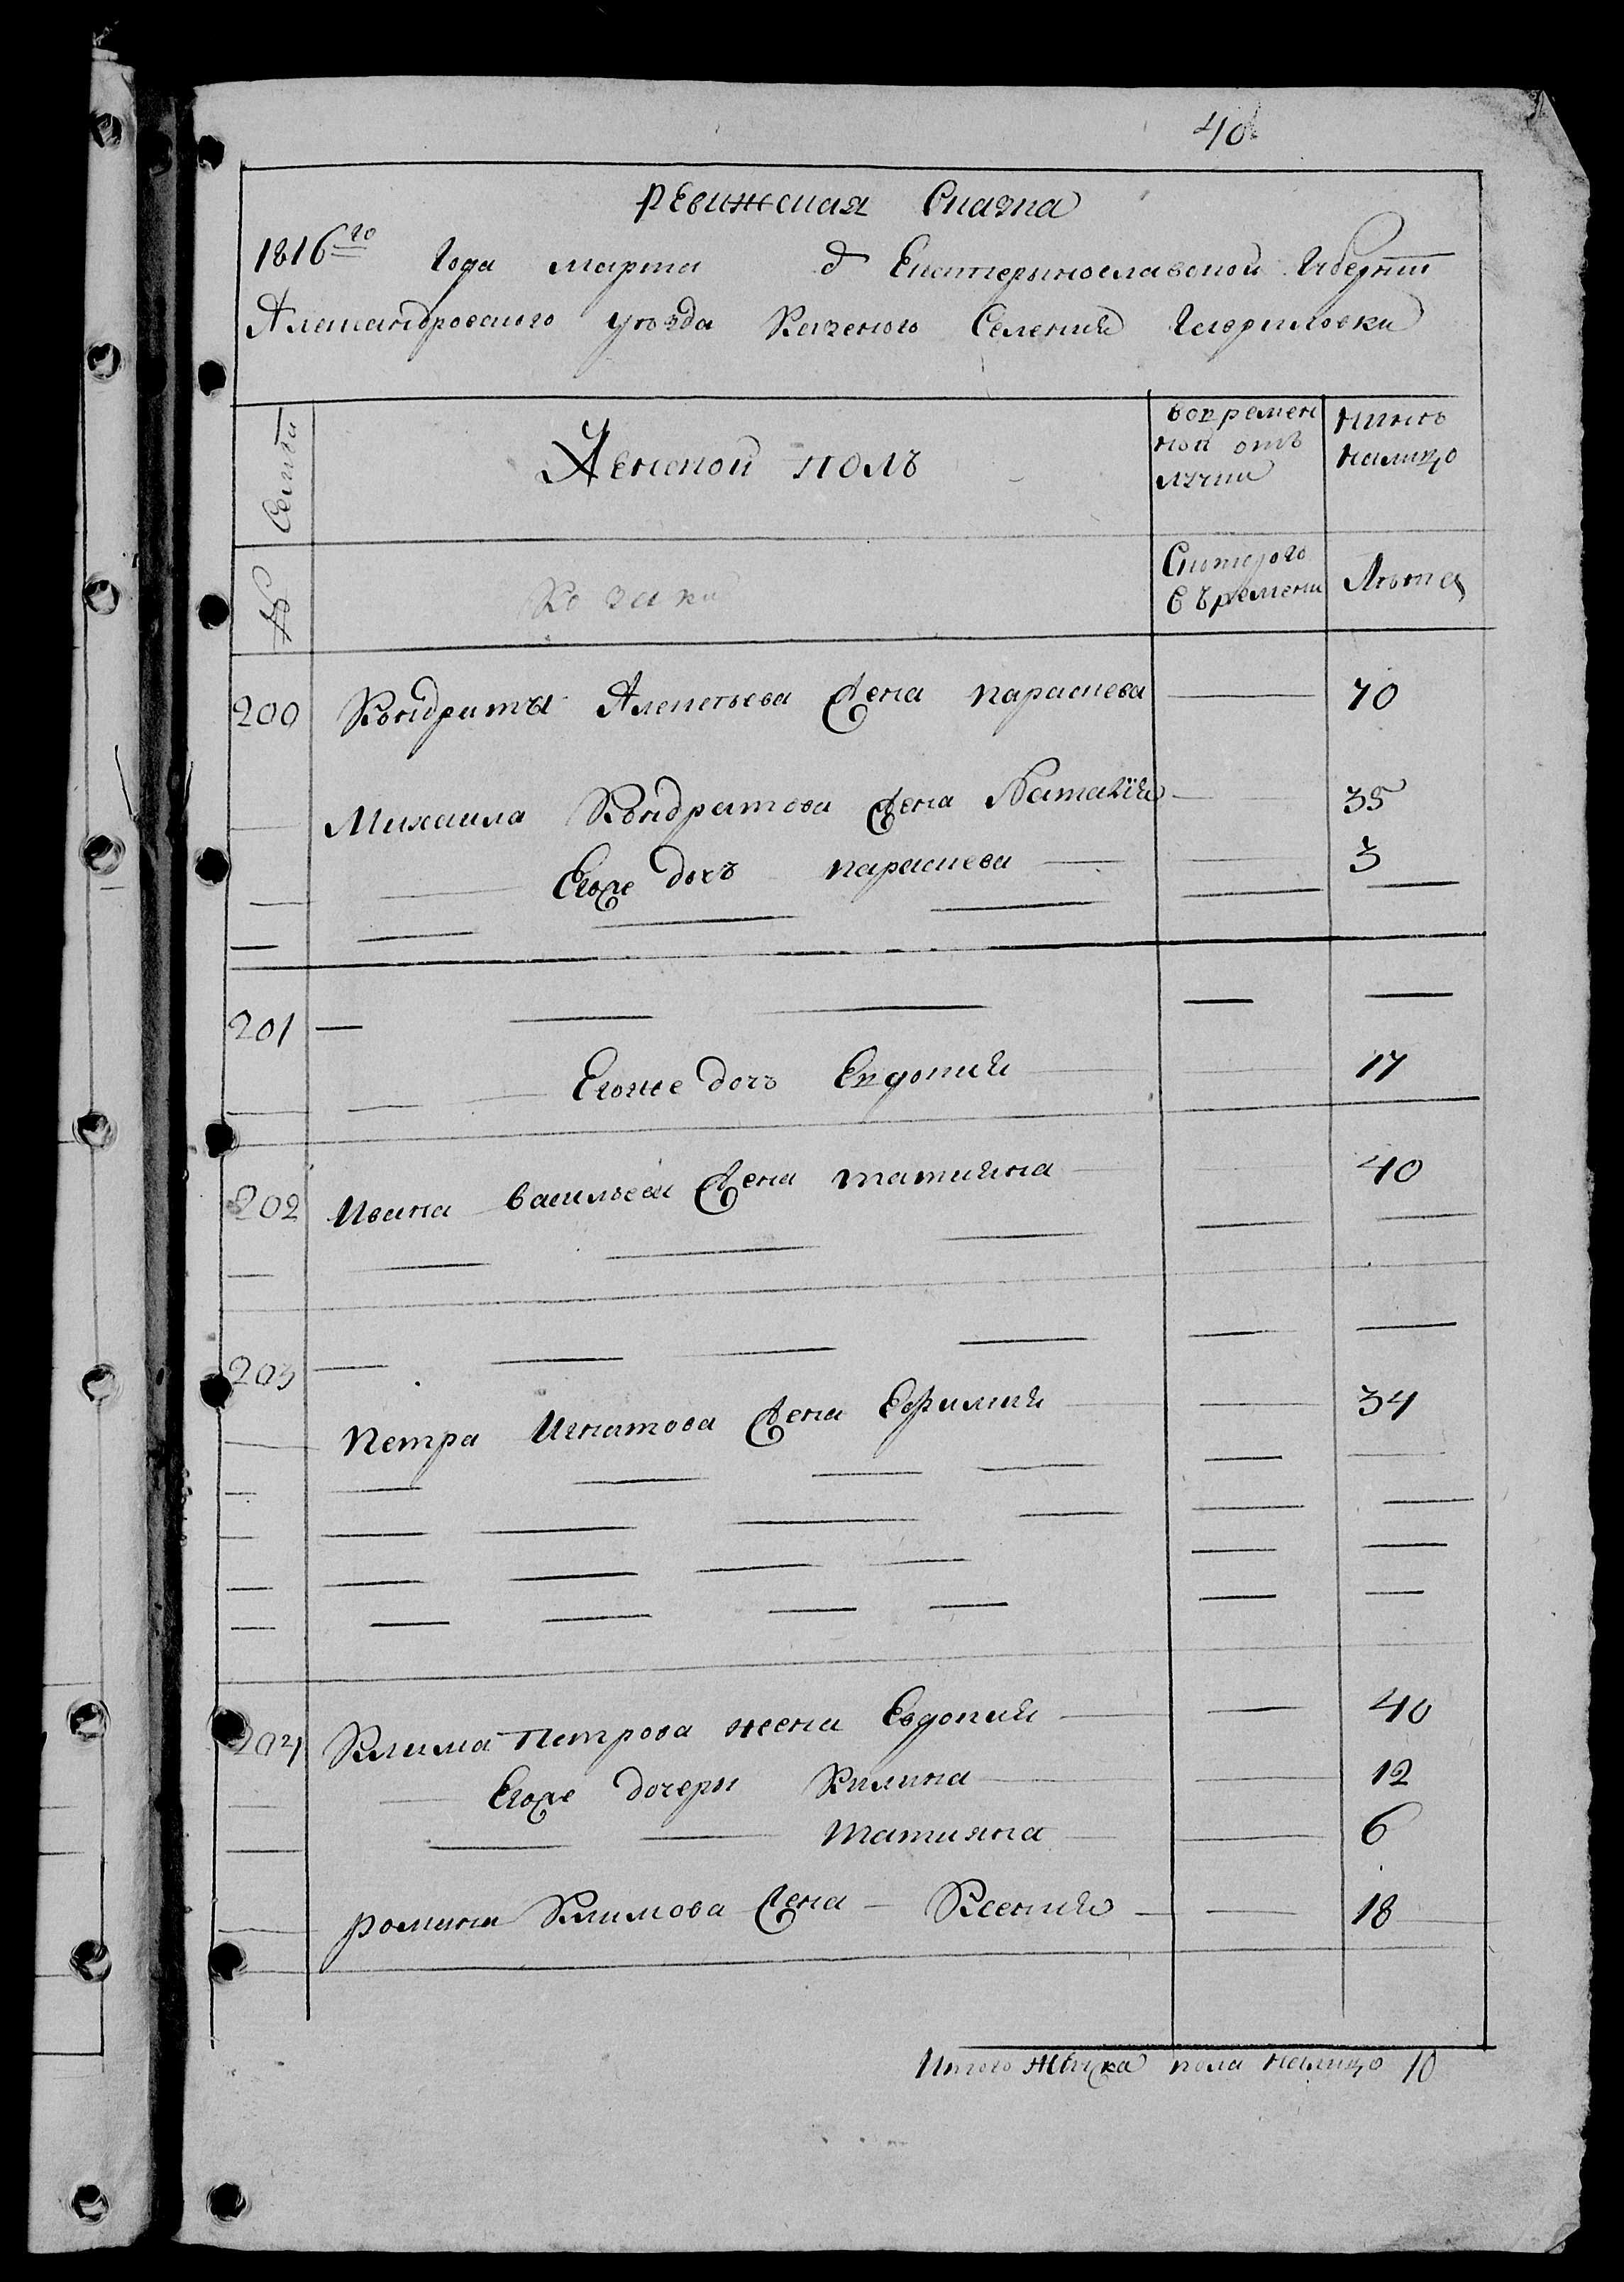 40
Ревижская Сказка
1816го Года марта д Екатеринославской Губернии
Александровского уезда Казеного Селения Гавриловки
Семьи
Женской полъ
вовремен
ной отъ
лучки
нынѣ
налицо
№
Козаки
Скоторого
Времени
Лѣта
200 Кондрата Алексѣева жена параскева — 70
Михаила Кондратова жена Наталия — 35
Егоже дочъ параскева — 3
201
Егоже дочъ Евдокия — 17
202 Ивана васильева жена татияна — 40
203
Петра Игнатова жена Ефимия — 34
204 Клима Петрова жена Евдокия — 40
Егоже дочери Килина — 12
татияна — 6
романа Климова жена — Ксения — 18
Итого женска пола налицо 10